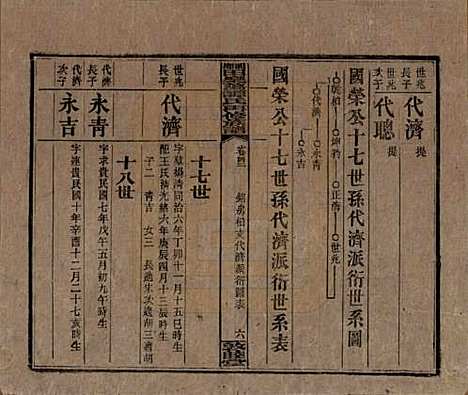 世兆長子 代濟 提
世兆次子 代聰 提
國榮公十七世孫代濟派衍世系圖
○朝柏 ○坤衿 ○正榜 ○世兆
○代濟 ○永青
○永吉
國榮公十七世孫代濟派衍世系表
卷四
銘房柏支代濟派衍圖表
六
敦睦堂
十七世
世兆長子 代濟
字 清同治六年丁卯十一月十五巳時生
配王氏清光緒六年庚辰四月十三辰時生
子二 青 吉 女三 長適朱次適胡三適胡
十八世
代濟長子 永青
字求貴民國七年戊午五月初九午時生
代濟次子 永吉
字連貴民國十年辛酉十二月二十七亥時生